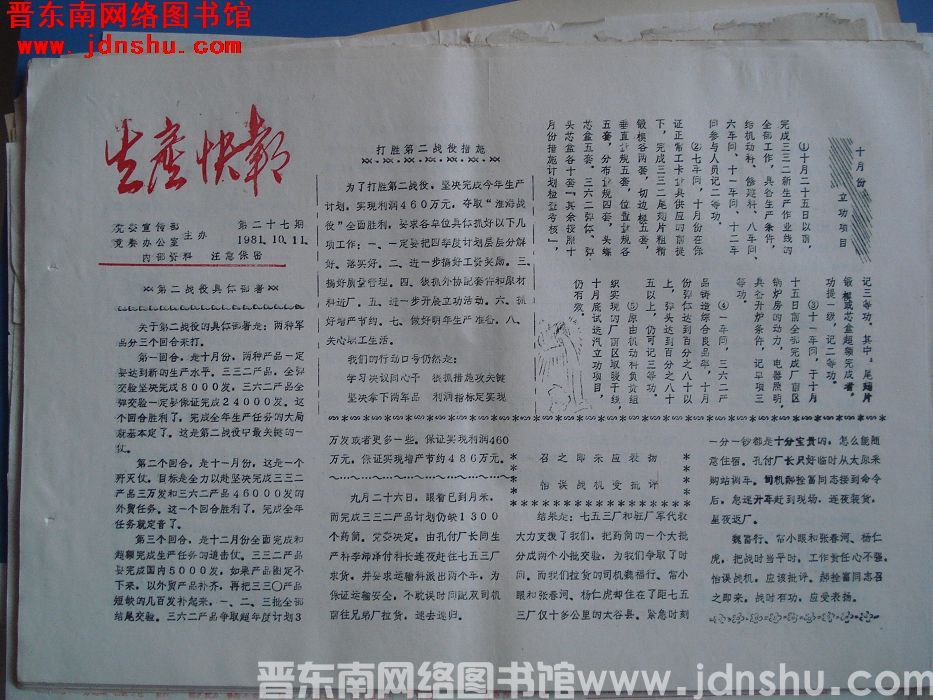 晋东南网络图书馆
www.jdnshu.com
生产快报
党委宣传部
竞赛办公室 主办
第二十七期
1981.10.11.
内部资料 注意保密
第二战役具体部署
关于第二战役的具体部署是：两种军
品分三个回合来打。
第一回合，是十月份，两种产品一定
要达到新的生产水平。三三二产品，全弹
交验坚决完成8000发，三六二产品全
弹交验一定要保证完成24000发。这
个回合胜利了，完成全年生产任务的大局
就基本定了。这是第二战役中最关键的一
仗。
第二个回合，是十一月份，这是一个
歼灭仗。目标是全力以赴坚决完成三三二
产品三万发和三六二产品46000发的
外贸任务。这一个回合胜利了，完成全年
任务就定音了。
第三个回合，是十二月份全面完成和
超额完成生产任务的追击仗。三三二产品
要完成国内5000发，如果产品图定不
下来，以外贸产品补齐，再把三三〇产品
短缺的几百发补起来，一、二、三批全部
结尾交验。三六二产品争取超年度计划3
打胜第二战役措施
为了打胜第二战役，坚决完成今年生产
计划，实现利润460万元，夺取“淮海战
役”全面胜利，要求各单位具体抓好以下几
项工作：一、一定要把四季度计划层层分解
好、落实好。二、进一步搞好工资奖励。三、
搞好质量管理。四、狠抓外协配套件和原材
料进厂。五、进一步开展立功活动。六、抓
好增产节约。七、做好明年生产准备。八、
关心职工生活。
我们的行动口号仍然是：
学习决议同心干 狠抓措施攻关键
坚决拿下两军品 利润指标定实现
十月份
立功项目
①十月二十五日以前，
完成三三二新生产作业线的
全部工作，具备生产条件，
给机动科、修建科、八车间、
六车间、十一车间、十二车
间参与人员记二等功。
②七车间，十月份在保
证正常工卡量具供应的前提
下，完成三三二尾翅片粗精
锻模各两套，切边模五套，
垂直量规五套，位置量规各
五套，分布量规四套，头螺
芯盒五套，三六二弹体、弹
头芯盒各十套（其余按照十
月份措施计划检查考核），
记三等功。其中，尾翅片
锻模或芯盒超额完成者，
功提一级，记二等功。
③十一车间，于十月
十五日前全部完成厂前区
锅炉房的动力，电器照明，
具备开炉条件，记单项三
等功。
④一车间，三六二产
品铸造综合良品率，十月
份弹体达到百分之八十以
上，弹头达到百分之八十
五以上，仍可记三等功。
⑤原由机动科负责组
织实现的厂前区取暖干线，
十月底试运汽立功项目，
仍有效。
万发或者更多一些。保证实现利润460
万元，保证实现增产节约486万元。
召之即来应表扬
怡误战机受批评
九月二十六日，眼看已到月末，
而完成三三二产品计划仍缺1300
个药筒。党委决定，由孔付厂长同生
产科李海泽付科长连夜赶往七五三厂
求货，并要求运输科派出两个车，为
保证运输安全，不耽误时间配双司机
前往兄弟厂拉货，速去速归。
结果是：七五三厂和驻厂军代表
大力支援了我们，把药筒的一个大批
分成两个小批交验，为我们争取了时
间。而我们拉货的司机魏福行、常小
眼和张春河、杨仁虎却住在了距七五
三厂仅十多公里的太谷县。紧急时刻
一分一钞都是十分宝贵的，怎么能随
意住宿。孔付厂长只好临时从太原来
购站调车。司机郝拴富同志接到命令
后，急速开车赶到现场，连夜装货，
星夜返厂。
魏富行、常小眼和张春河、杨仁
虎，把战时当平时，工作责任心不强，
怡误战机，应该批评。郝拴富同志召
之即来，战时有功，应受表扬。
晋东南网络图书馆 www.jdnshu.com